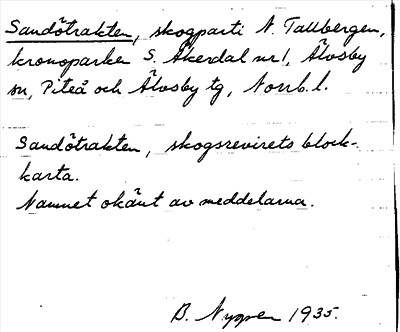 Sandötrakten, skogparti N. Tallbergen,
kronoparken S. Åkerdal nr 1, Älvsby
sn, Piteå och Älvsby tg, Norrb. l.
Sandötrakten, skogsrevirets block-
karta.
Namnet okänt av meddelarna.
B. Nygren 1935.